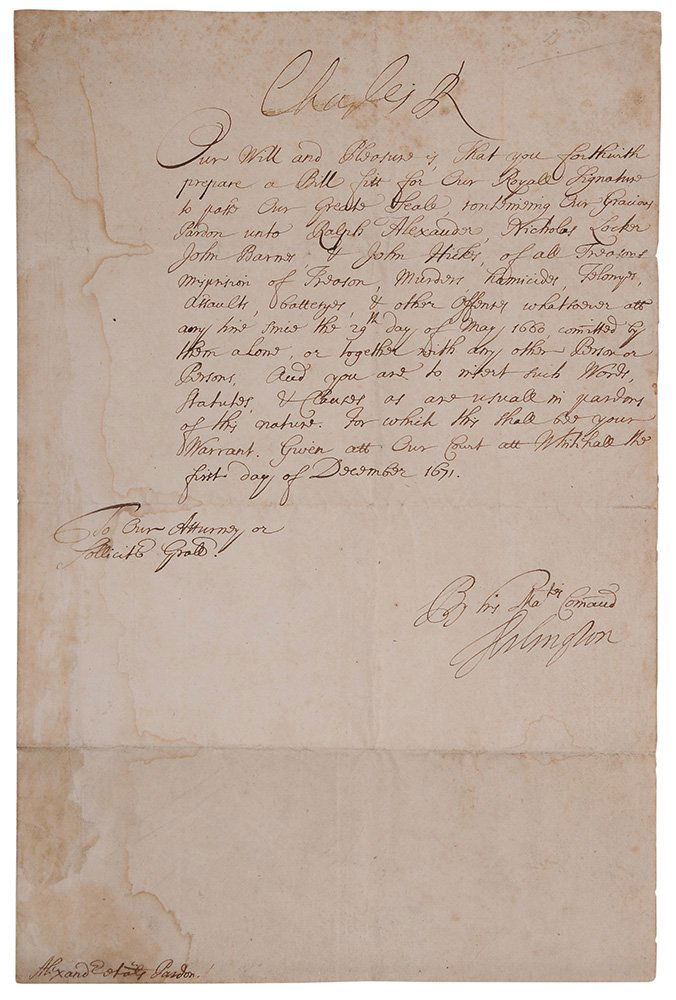 Charles R
Our Will and Pleasure is, That you forthwith
prepare a Bill fitt for Our Royall Signature
to passe Our Greate Seale conteineing Our Gracious
Pardon unto Ralph Alexander, Nicholas Locker
John Barnes, & John Hickes, of all Treasons
misprision of Treason, Murders, homicides, Felonyes,
Assaults, batteryes, & other Offences whatsoever att
any time since the 29th day of May 1660, comitted by
them alone, or together with any other Person or
Persons, And you are to insert such Words,
Statutes, & Clauses as are usuall in pardons
of this nature. For which this shall bee your
Warrant. Given att Our Court att Whitehall the
first day of December 1671.
To Our Attorney or
Sollicitr Grall.
By his Maties Comand
Arlington
Alexander et als Pardon.